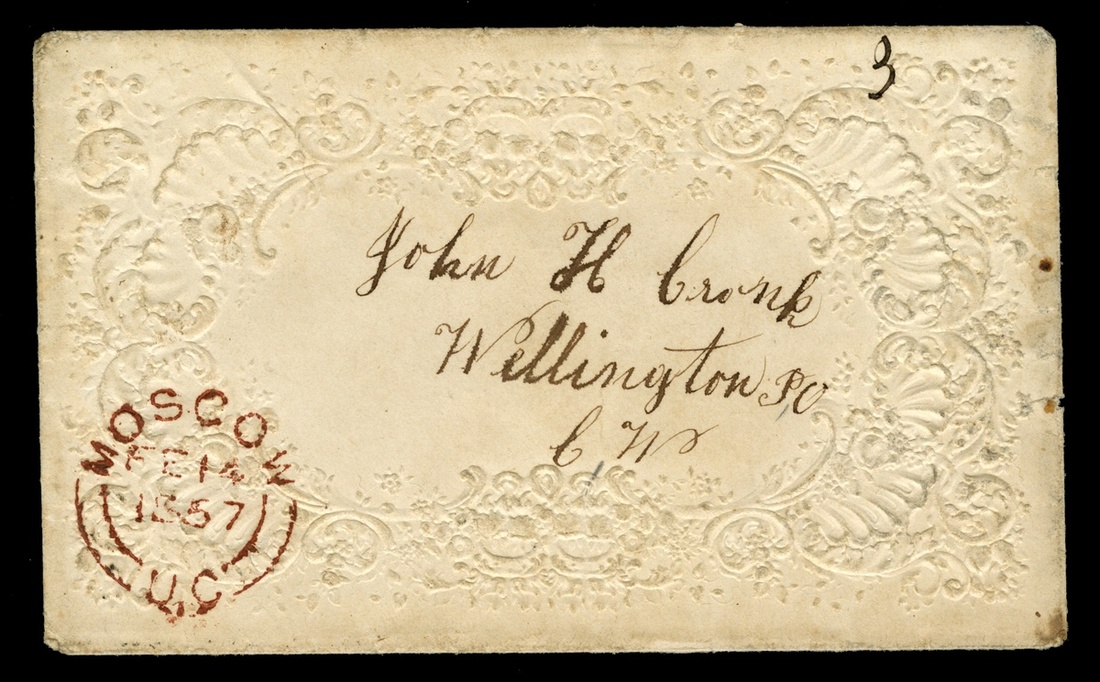 3
John H Cronk
Wellington PO
C W
MOSCOW
FE 14
1857
U.C